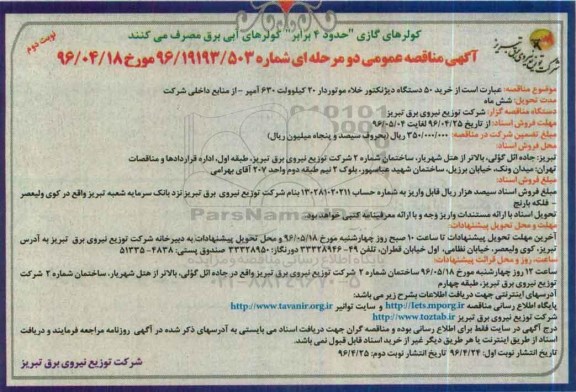 کولرهای گازی "حدود ۴ برابر" کولرهای آبی برق مصرف می کنند
نوبت دوم
شرکت توزیع نیروی برق تبریز
آگهی مناقصه عمومی دو مرحله ای شماره ۹۶/۱۹۱۹۳/۵۰۳ مورخ ۹۶/۰۴/۱۸
موضوع مناقصه: عبارت است از خرید ۵۰ دستگاه دیژنکتور خلاء موتوردار ۲۰ کیلوولت ۶۳۰ آمپر - از منابع داخلی شرکت
مدت تحویل: شش ماه
دستگاه مناقصه گزار: شرکت توزیع نیروی برق تبریز
مهلت فروش اسناد: از تاریخ ۹۶/۰۴/۲۵ لغایت ۹۶/۰۵/۰۴
مبلغ تضمین شرکت در مناقصه: ۳۵۰/۰۰۰/۰۰۰ ریال (بحروف سیصد و پنجاه میلیون ریال)
محل فروش اسناد:
تبریز: جاده ائل گؤلی، بالاتر از هتل شهریار، ساختمان شماره ۲ شرکت توزیع نیروی برق تبریز، طبقه اول، اداره قراردادها و مناقصات
تهران: میدان ونک، خیابان برزیل، ساختمان شهید عباسپور، بلوک ۲ نیم طبقه دوم واحد ۲۰۷ آقای بهرامی
مبلغ فروش اسناد:
مبلغ فروش اسناد سیصد هزار ریال قابل واریز به شماره حساب ۱۳۰۲۸۱۰۲۰۲۱۱ بنام شرکت توزیع نیروی برق تبریز نزد بانک سرمایه شعبه تبریز واقع در کوی ولیعصر - فلکه بارنج
تحویل اسناد با ارائه مستندات واریز وجه و با ارائه معرفینامه کتبی خواهد بود
مهلت و محل تحویل پیشنهادات:
آخرین مهلت تحویل پیشنهادات تا ساعت ۱۰ صبح روز چهارشنبه مورخ ۹۶/۰۵/۱۸ و محل تحویل پیشنهادات به دبیرخانه شرکت توزیع نیروی برق تبریز به آدرس تبریز، کوی ولیعصر، خیابان نظامی، اول خیابان قطران، تلفن ۴۹-۳۳۳۲۸۹۴۶ دورنگار: ۳۳۳۲۸۹۵۰ صندوق پستی: ۴۸۳۸-۵۱۳۳۵
ساعت، روز و محل قرائت پیشنهادات:
ساعت ۱۲ روز چهارشنبه مورخ ۹۶/۰۵/۱۸ ساختمان شماره ۲ شرکت توزیع نیروی برق تبریز واقع در جاده ائل گؤلی، بالاتر از هتل شهریار، ساختمان شماره ۲ شرکت توزیع نیروی برق تبریز، طبقه چهارم
آدرسهای اینترنتی جهت دریافت اطلاعات بشرح زیر می باشد:
پایگاه اطلاع رسانی مناقصه http://iets.mporg.ir و سایت توانیر http://www.tavanir.org.ir
شرکت توزیع نیروی برق تبریز http://www.toztab.ir
درج آگهی در سایت فقط برای اطلاع رسانی بوده و مناقصه گران جهت دریافت اسناد می بایستی به آدرسهای ذکر شده در آگهی روزنامه مراجعه فرمایند و دریافت اسناد از طریق اینترنت یا هر طریق دیگر غیر از خرید اسناد قابل قبول نمی باشد.
تاریخ انتشار نوبت اول: ۹۶/۴/۲۴ تاریخ انتشار نوبت دوم: ۹۶/۴/۲۵
شرکت توزیع نیروی برق تبریز